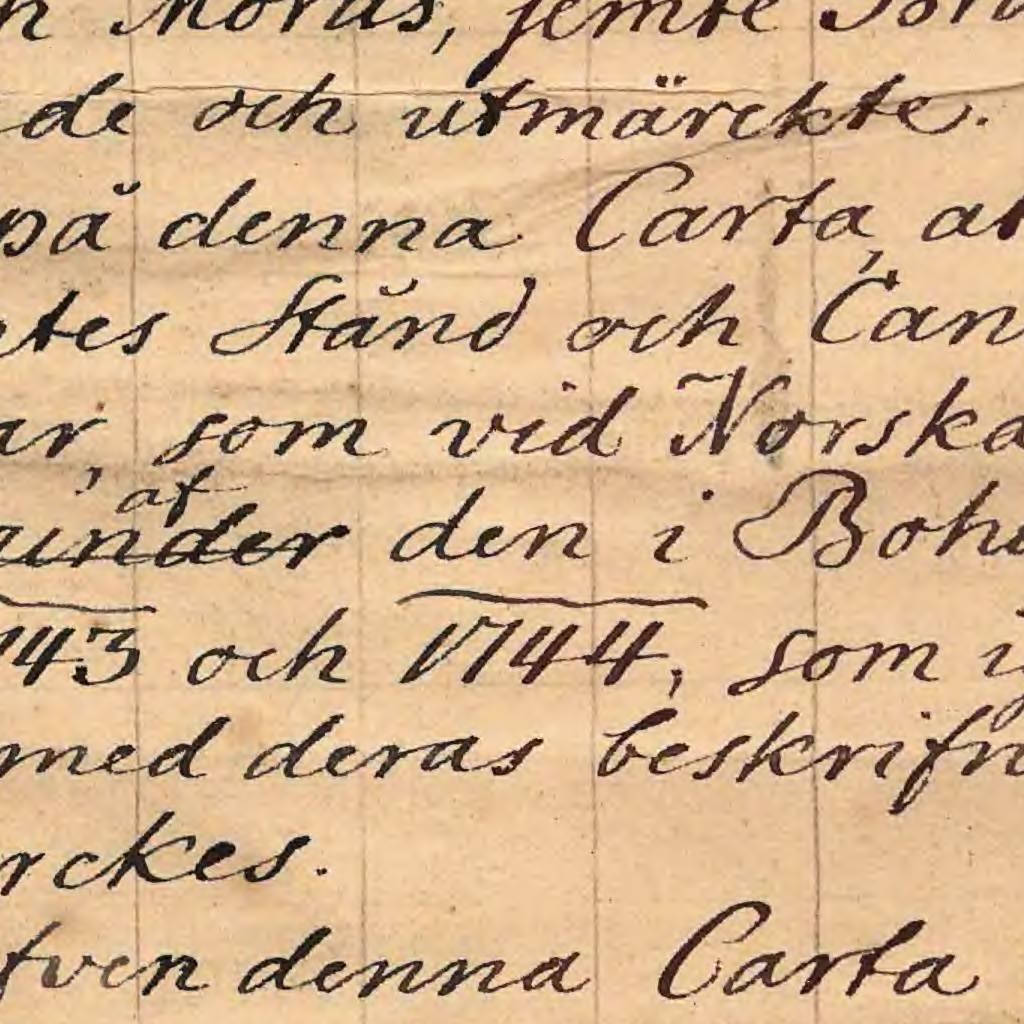 Moras, jemte
de och utmärckte.
på denna Carta, at
tes Stånd och Can
ar, som vid Norska
af
under den i Bohu
1743 och 1744, som i
med deras beskrifn
rckes.
fven denna Carta